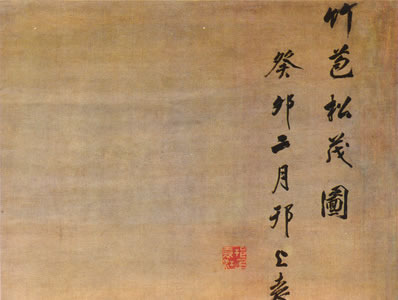 竹苞松茂圖
癸卯二月邗上袁